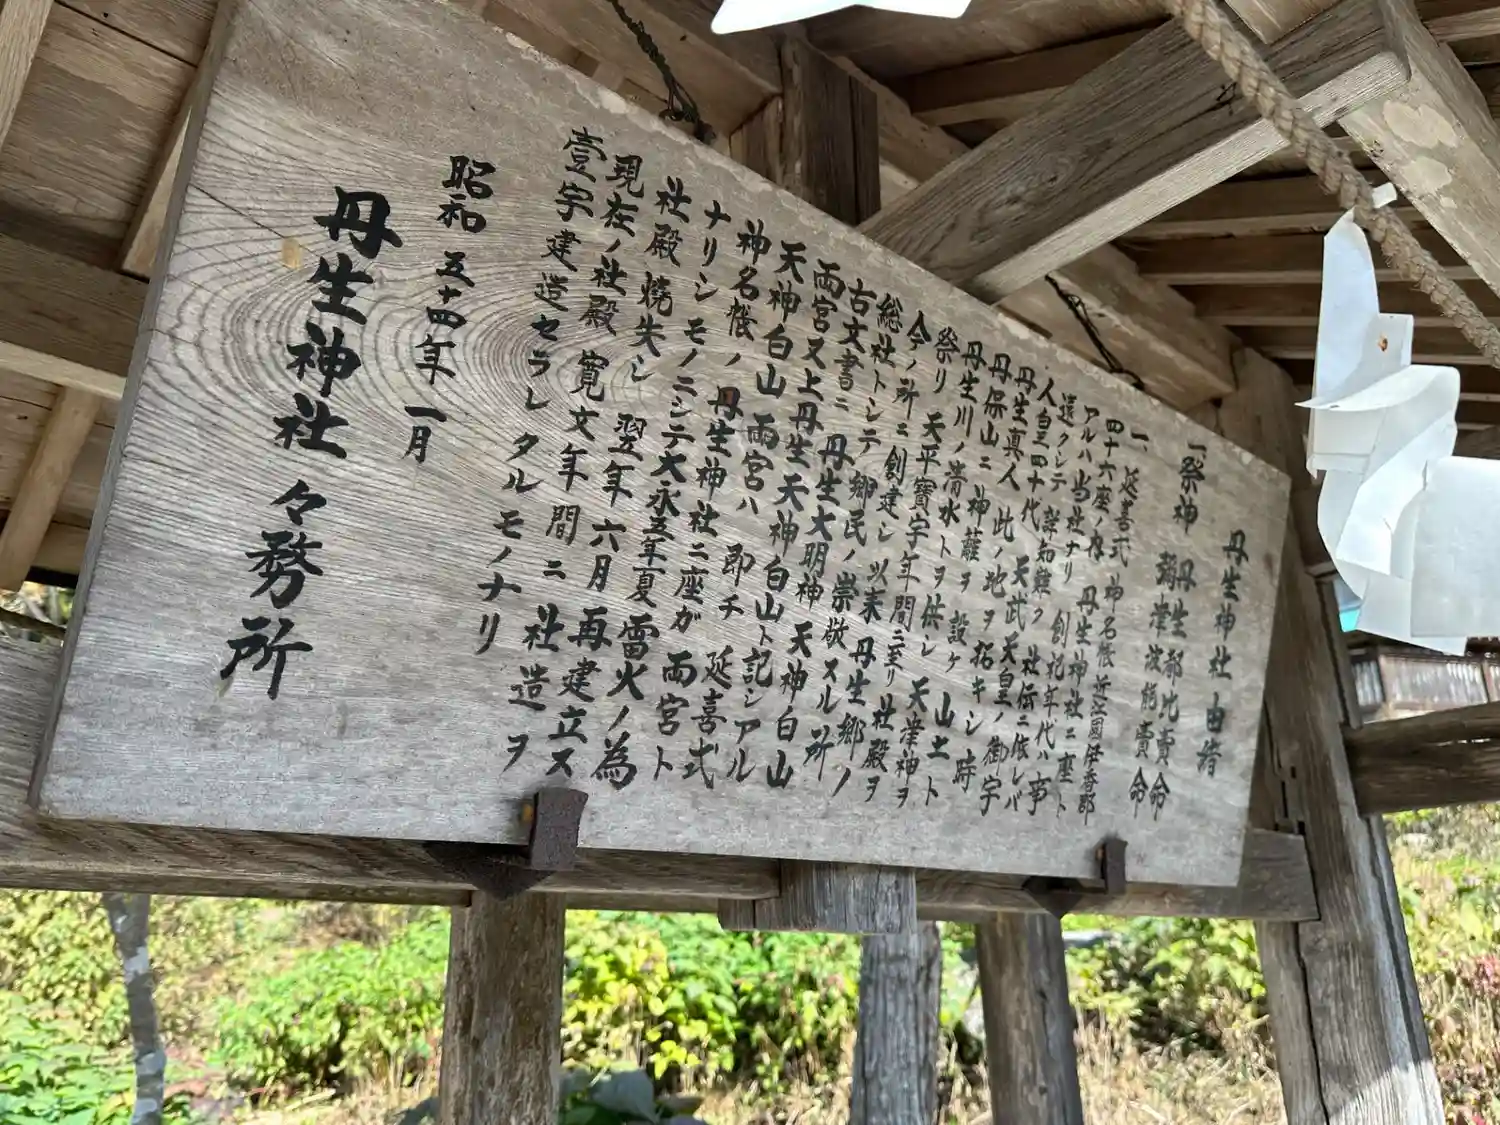 丹生神社由緒
一祭神 丹生都比賣命
彌津波能賣命
一、延喜式 神名帳近江國伊香郡
四十六座ノ内 丹生神社二座ト
アルハ当社ナリ 創祀年代ハ事
遠クシテ詳知難ク 社伝ニ依レバ
人皇四十代 天武天皇ノ御宇
丹生真人 此ノ地ヲ拓キシ時
丹保山ニ 神籬ヲ設ケ 山土ト
丹生川ノ清水トヲ供シ 天津神ヲ
祭リ 天平寶字年間ニ至リ社殿ヲ
今ノ所ニ創建シ以来 丹生郷ノ
総社トシテ郷民ノ崇敬スル所
古文書ニ 丹生大明神 天神白山
両宮又上丹生天神白山ト記シアル
天神白山両宮ハ 即チ 延喜式
神名帳ノ 丹生神社二座ガ 両宮ト
ナリシモノニシテ大永五年夏雷火ノ為
社殿焼失シ 翌年六月再建立ス
現在ノ社殿 寛文年間ニ 社造ヲ
壹宇建造セラレタルモノナリ
昭和五十四年一月
丹生神社々務所